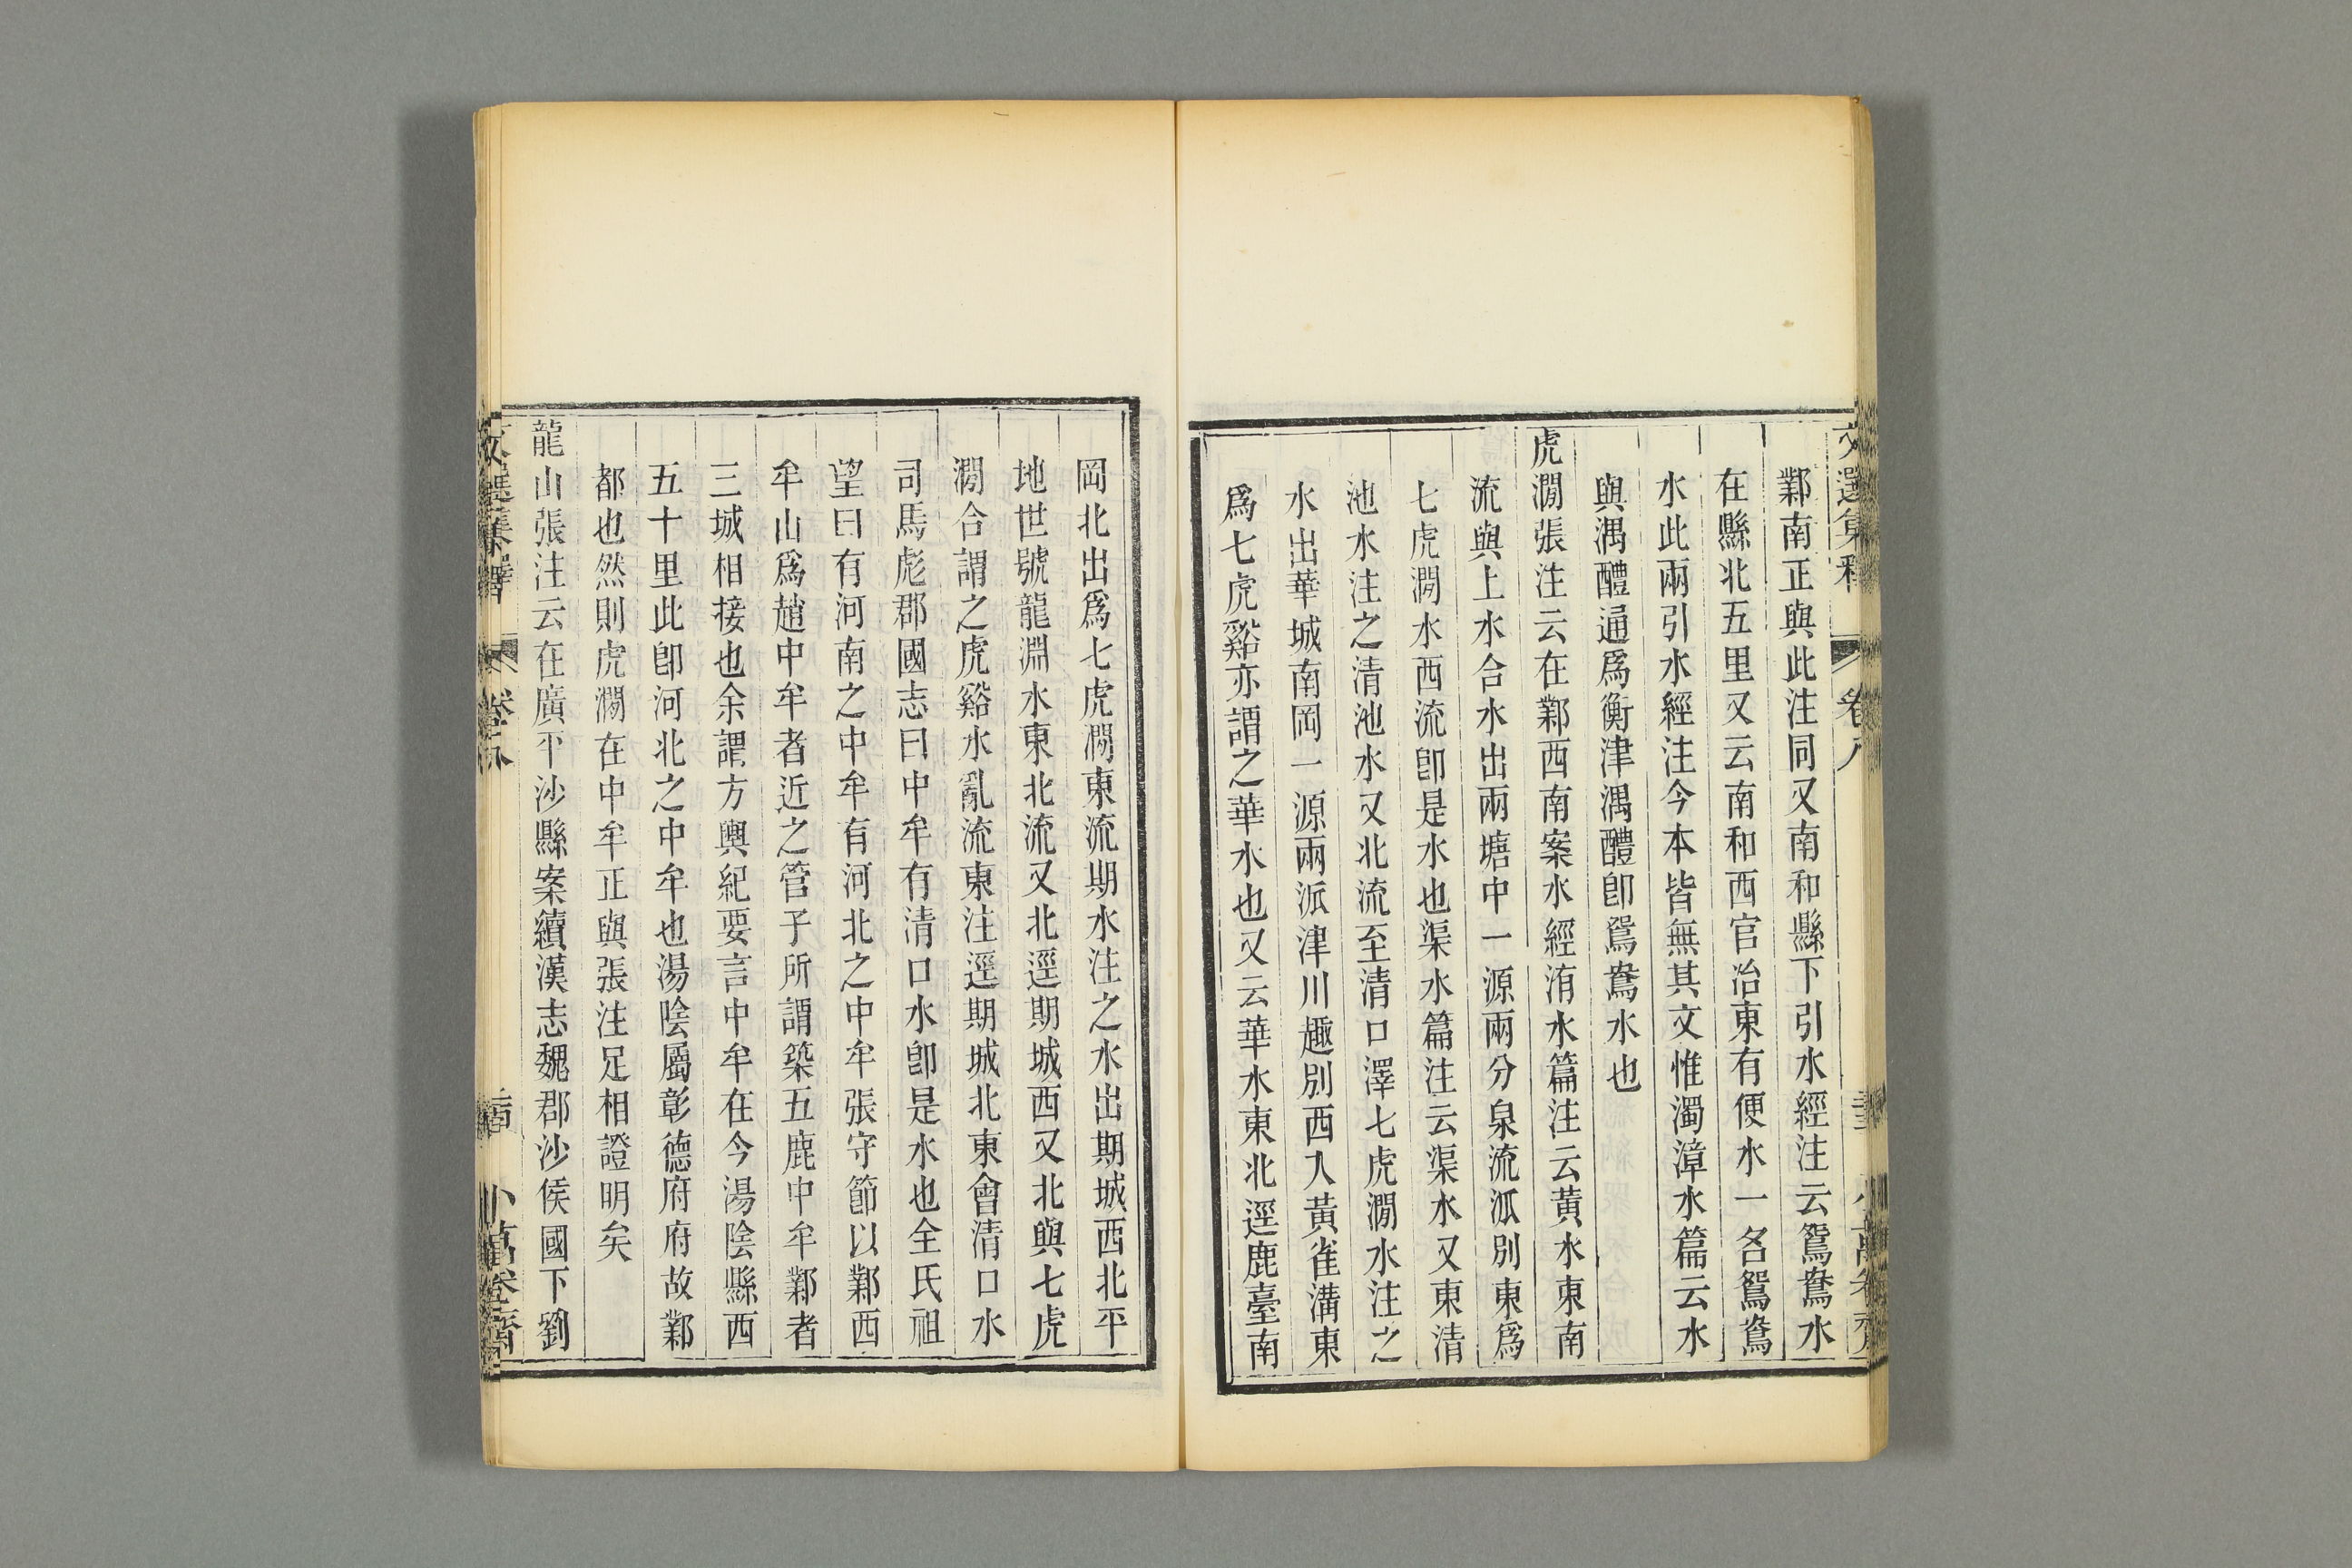 文選集釋 卷八
鄴南正與此注同又南和縣下引水經注云鴛鴦水
在縣北五里又云南和西官冶東有便水一名鴛鴦
水此兩引水經注今本皆無其文惟濁漳水篇云水
與湡醴通爲衡津湡醴卽鴛鴦水也
虎澗張注云在鄴西南案水經洧水篇注云黃水東南
流與上水合水出兩塘中一源兩分泉流派別東爲
七虎澗水西流卽是水也渠水篇注云渠水又東清
池水注之清池水又北流至清口澤七虎澗水注之
水出華城南岡一源兩派津川趣別西入黃雀溝東
爲七虎谿亦謂之華水也又云華水東北逕鹿臺南
岡北出爲七虎澗東流期水注之水出期城西北平
地世號龍淵水東北流又北逕期城西又北與七虎
澗合謂之虎谿水亂流東注逕期城北東會清口水
司馬彪郡國志曰中牟有清口水卽是水也全氏祖
望曰有河南之中牟有河北之中牟張守節以鄴西
牟山爲趙中牟者近之管子所謂築五鹿中牟鄴者
三城相接也余謂方輿紀要言中牟在今湯陰縣西
五十里此卽河北之中牟也湯陰屬彰德府府故鄴
都也然則虎澗在中牟正與張注足相證明矣
龍山張注云在廣平沙縣案續漢志魏郡沙侯國下劉
文選集釋
小萬卷齋